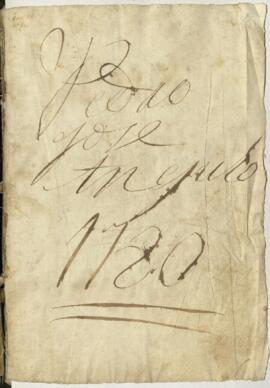 Pedro
Jose
Angulo
1780